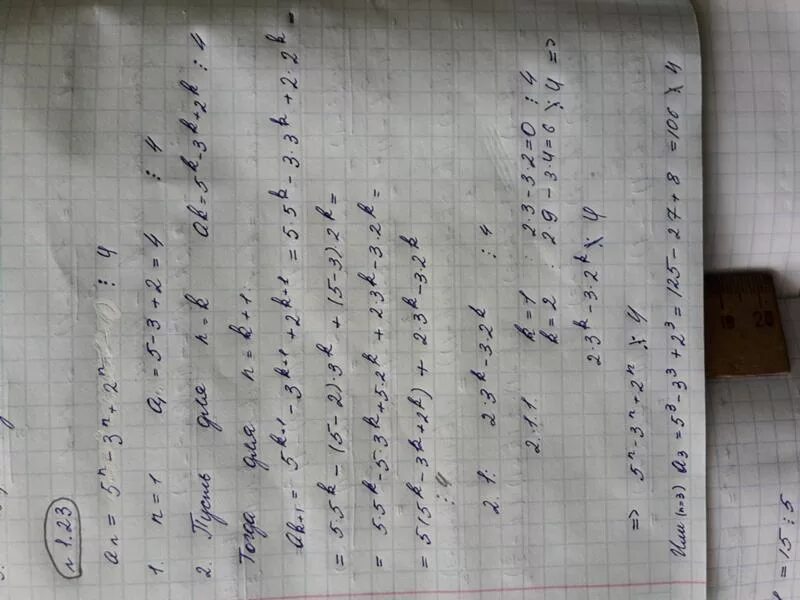 н 1.23
aₙ = 5ⁿ - 3ⁿ + 2ⁿ ⋮ 4
1. n=1 a₁ = 5-3+2=4 ⋮ 4
2. Пусть для n=k ak = 5ᵏ-3ᵏ+2ᵏ ⋮ 4
Тогда для n=k+1:
ak+1 = 5ᵏ⁺¹ - 3ᵏ⁺¹ + 2ᵏ⁺¹ = 5·5ᵏ - 3·3ᵏ + 2·2ᵏ =
= 5·5ᵏ - (5-2)·3ᵏ + (5-3)·2ᵏ =
= 5·5ᵏ - 5·3ᵏ + 5·2ᵏ + 2·3ᵏ - 3·2ᵏ =
= 5(5ᵏ - 3ᵏ + 2ᵏ) + 2·3ᵏ - 3·2ᵏ
⋮ 4
2.1. 2·3ᵏ - 3·2ᵏ ⋮ 4
2.1.1. k=1 2·3-3·2=0 ⋮ 4
k=2 : 2·9 - 3·4=6 ⋮̸ 4 =>
2·3ᵏ - 3·2ᵏ ⋮̸ 4
=> 5ⁿ - 3ⁿ + 2ⁿ ⋮̸ 4
Или (n=3) a₃ = 5³ - 3³ + 2³ = 125 - 27 + 8 = 106 ⋮̸ 4
= 15 : 5
10 20